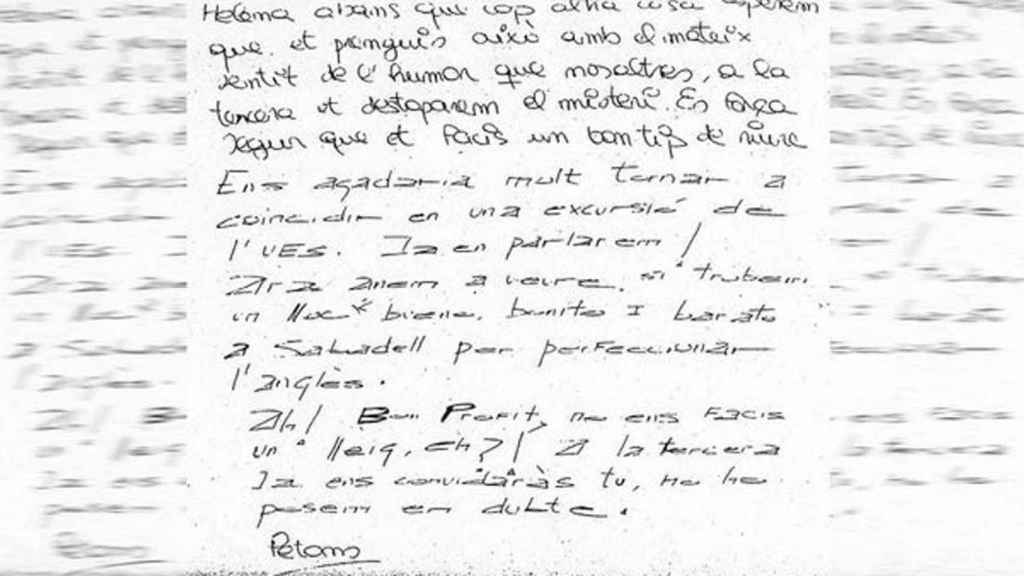 Helena abans que cap altra cosa esperem
que et prenguis això amb el mateix
sentit de l'humor que nosaltres, a la
tercera et destaparem el misteri. És força
segur que et facis un bon tip de riure
Ens agadaria molt tornar a
coincidir en una excursió de
l'UES. Ja en parlarem!
Ara anem a veure, si trobem
un lloc* bieno, bonito I barato
a Sabadell per perfeccionar
l'anglès.
Ah! Bon Profit, no ens facis
un lleig, eh?! A la tercera
Ja ens convidaràs tu, no ho
posem en dubte.
Petons